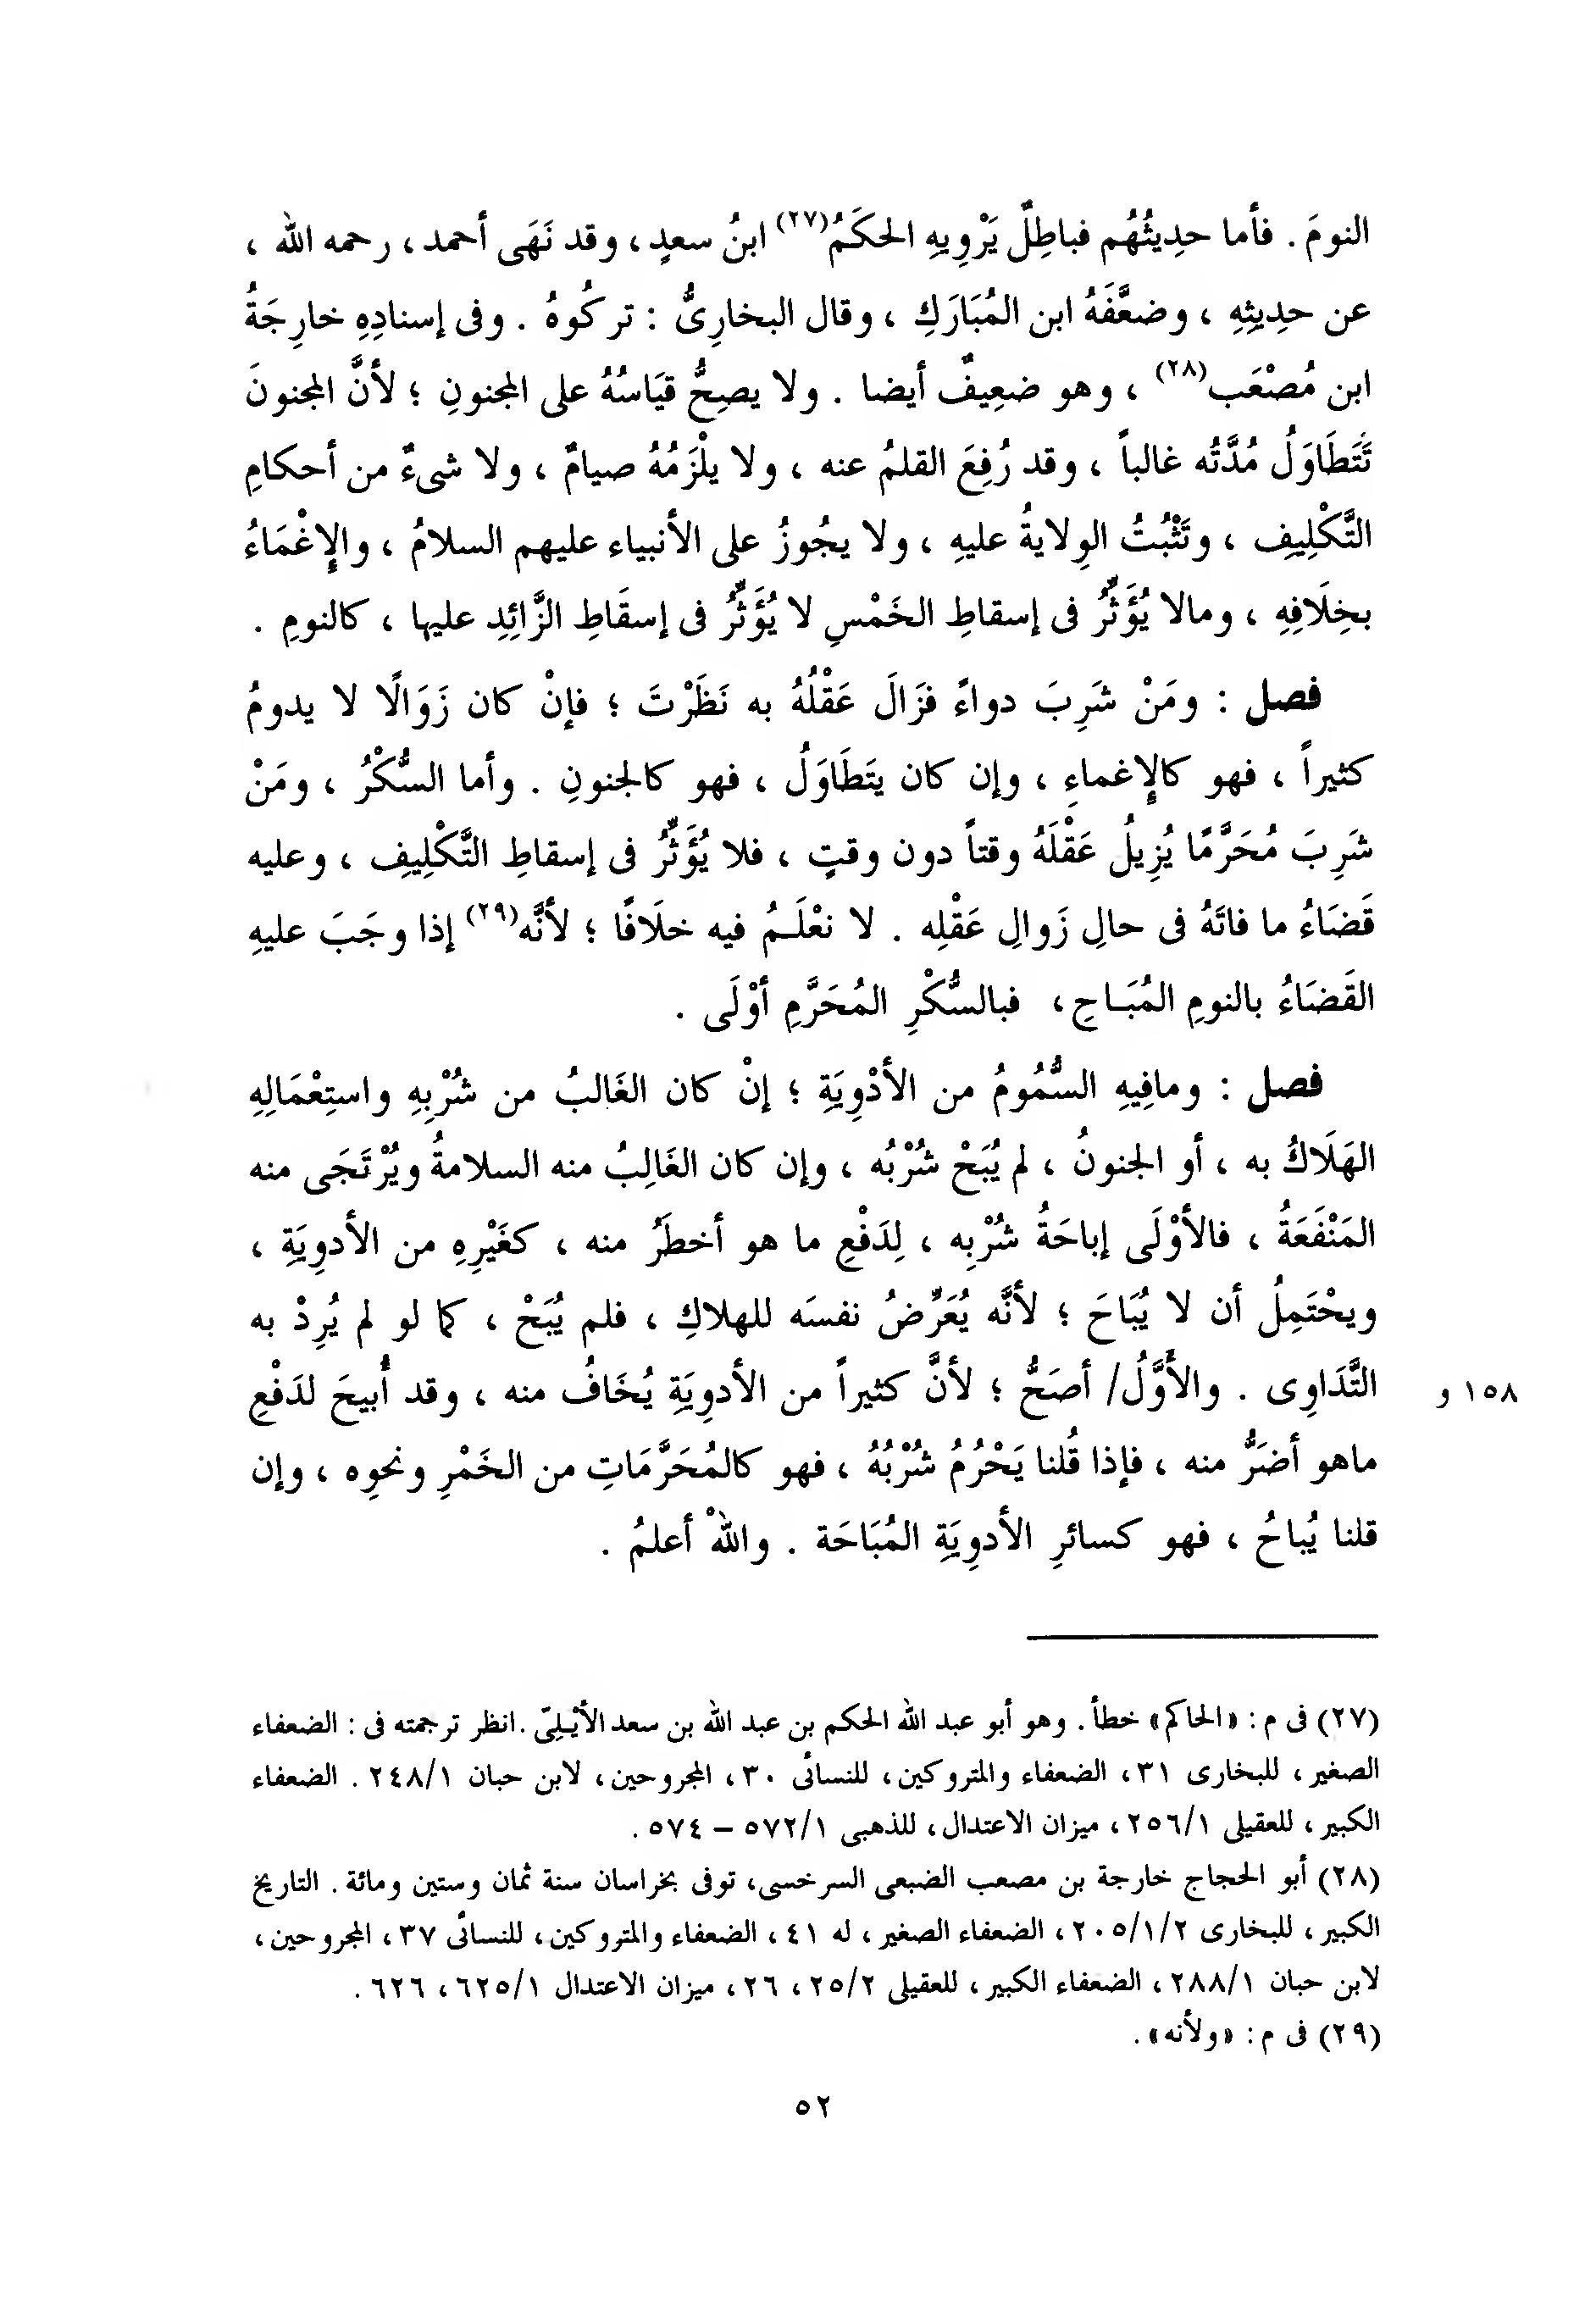 النومَ . فأما حدِيثُهُم فباطِلٌ يَرْوِيهِ الحكَمُ(٢٧) ابنُ سعدٍ ، وقد نَهَى أحمد ، رحمه الله ،
عن حدِيثِهِ ، وضعَّفَهُ ابن المُبَارَكِ ، وقال البخارِىُّ : تركُوهُ . وفى إسنادِهِ خارِجَةُ
ابن مُصْعَب(٢٨) ، وهو ضعِيفٌ أيضا . ولا يصِحُّ قيَاسُهُ على المجنونِ ؛ لأنَّ المجنونَ
تَتَطَاوَلُ مُدَّتُه غالباً ، وقد رُفِعَ القلمُ عنه ، ولا يلْزَمُهُ صيامٌ ، ولا شىءٌ من أحكامِ
التَّكْلِيفِ ، وتَثْبُتُ الوِلايةُ عليهِ ، ولا يجُوزُ على الأنبياء عليهم السلامُ ، والإغْمَاءُ
بخِلَافِهِ ، ومالا يُؤَثِّرُ فى إسقاطِ الخَمْسِ لا يُؤَثِّرُ فى إسقَاطِ الزَّائِدِ عليها ، كالنومِ .
فصل : ومَنْ شَرِبَ دواءً فزَالَ عَقْلُهُ به نَظَرْتَ ؛ فإنْ كان زَوَالًا لا يدومُ
كثيراً ، فهو كالإغماءِ ، وإن كان يتَطَاوَلُ ، فهو كالجنونِ . وأما السُّكْرُ ، ومَنْ
شَرِبَ مُحَرَّمًا يُزِيلُ عَقْلَهُ وقتاً دون وقتٍ ، فلا يُؤَثِّرُ فى إسقاطِ التَّكْلِيفِ ، وعليه
قَضَاءُ ما فاتَهُ فى حالِ زَوالِ عَقْلِه . لا نعْلَمُ فيه خلَافًا ؛ لأنَّه(٢٩) إذا وجَبَ عليهِ
القَضَاءُ بالنومِ المُبَاحِ ، فبالسُّكْرِ المُحَرَّمِ أوْلَى .
فصل : ومافِيهِ السُّمُومُ من الأدْوِيَةِ ؛ إنْ كان الغَالبُ من شُرْبِهِ واستِعْمَالِهِ
الهَلَاكُ به ، أو الجنونُ ، لم يُبَحْ شُرْبُه ، وإن كان الغَالِبُ منه السلامةُ ويُرْتَجَى منه
المَنْفَعَةُ ، فالأوْلَى إباحَةُ شُرْبِه ، لِدَفْعِ ما هو أخطَرُ منه ، كغَيْرِهِ من الأدوِيَةِ ،
ويحْتَمِلُ أن لا يُبَاحَ ؛ لأنَّه يُعَرِّضُ نفسَه للهلاكِ ، فلم يُبَحْ ، كما لو لم يُرِدْ به
التَّدَاوِى . والأَوَّلُ/ أصَحُّ ؛ لأنَّ كثيراً من الأدوِيَةِ يُخَافُ منه ، وقد أُبيحَ لدَفْعِ
١٥٨ و
ماهو أضَرُّ منه ، فإذا قُلنا يَحْرُمُ شُرْبُهُ ، فهو كالمُحَرَّمَاتِ من الخَمْرِ ونحوِه ، وإن
قلنا يُباحُ ، فهو كسائرِ الأدوِيَةِ المُبَاحَة . واللهُ أعلمُ .
(٢٧) فى م : «الحاكم» خطأ . وهو أبو عبد الله الحكم بن عبد الله بن سعد الأيْلِىّ . انظر ترجمته فى : الضعفاء
الصغير ، للبخارى ٣١ ، الضعفاء والمتروكين ، للنسائى ٣٠ ، المجروحين ، لابن حبان ٢٤٨/١ . الضعفاء
الكبير ، للعقيلى ٢٥٦/١ ، ميزان الاعتدال ، للذهبى ٥٧٢/١ – ٥٧٤ .
(٢٨) أبو الحجاج خارجة بن مصعب الضبعى السرخسى ، توفى بخراسان سنة ثمان وستين ومائة . التاريخ
الكبير ، للبخارى ٢٠٥/١/٢ ، الضعفاء الصغير ، له ٤١ ، الضعفاء والمتروكين ، للنسائى ٣٧ ، المجروحين ،
لابن حبان ٢٨٨/١ ، الضعفاء الكبير ، للعقيلى ٢٥/٢ ، ٢٦ ، ميزان الاعتدال ٦٢٥/١ ، ٦٢٦ .
(٢٩) فى م : «ولأنه» .
٥٢